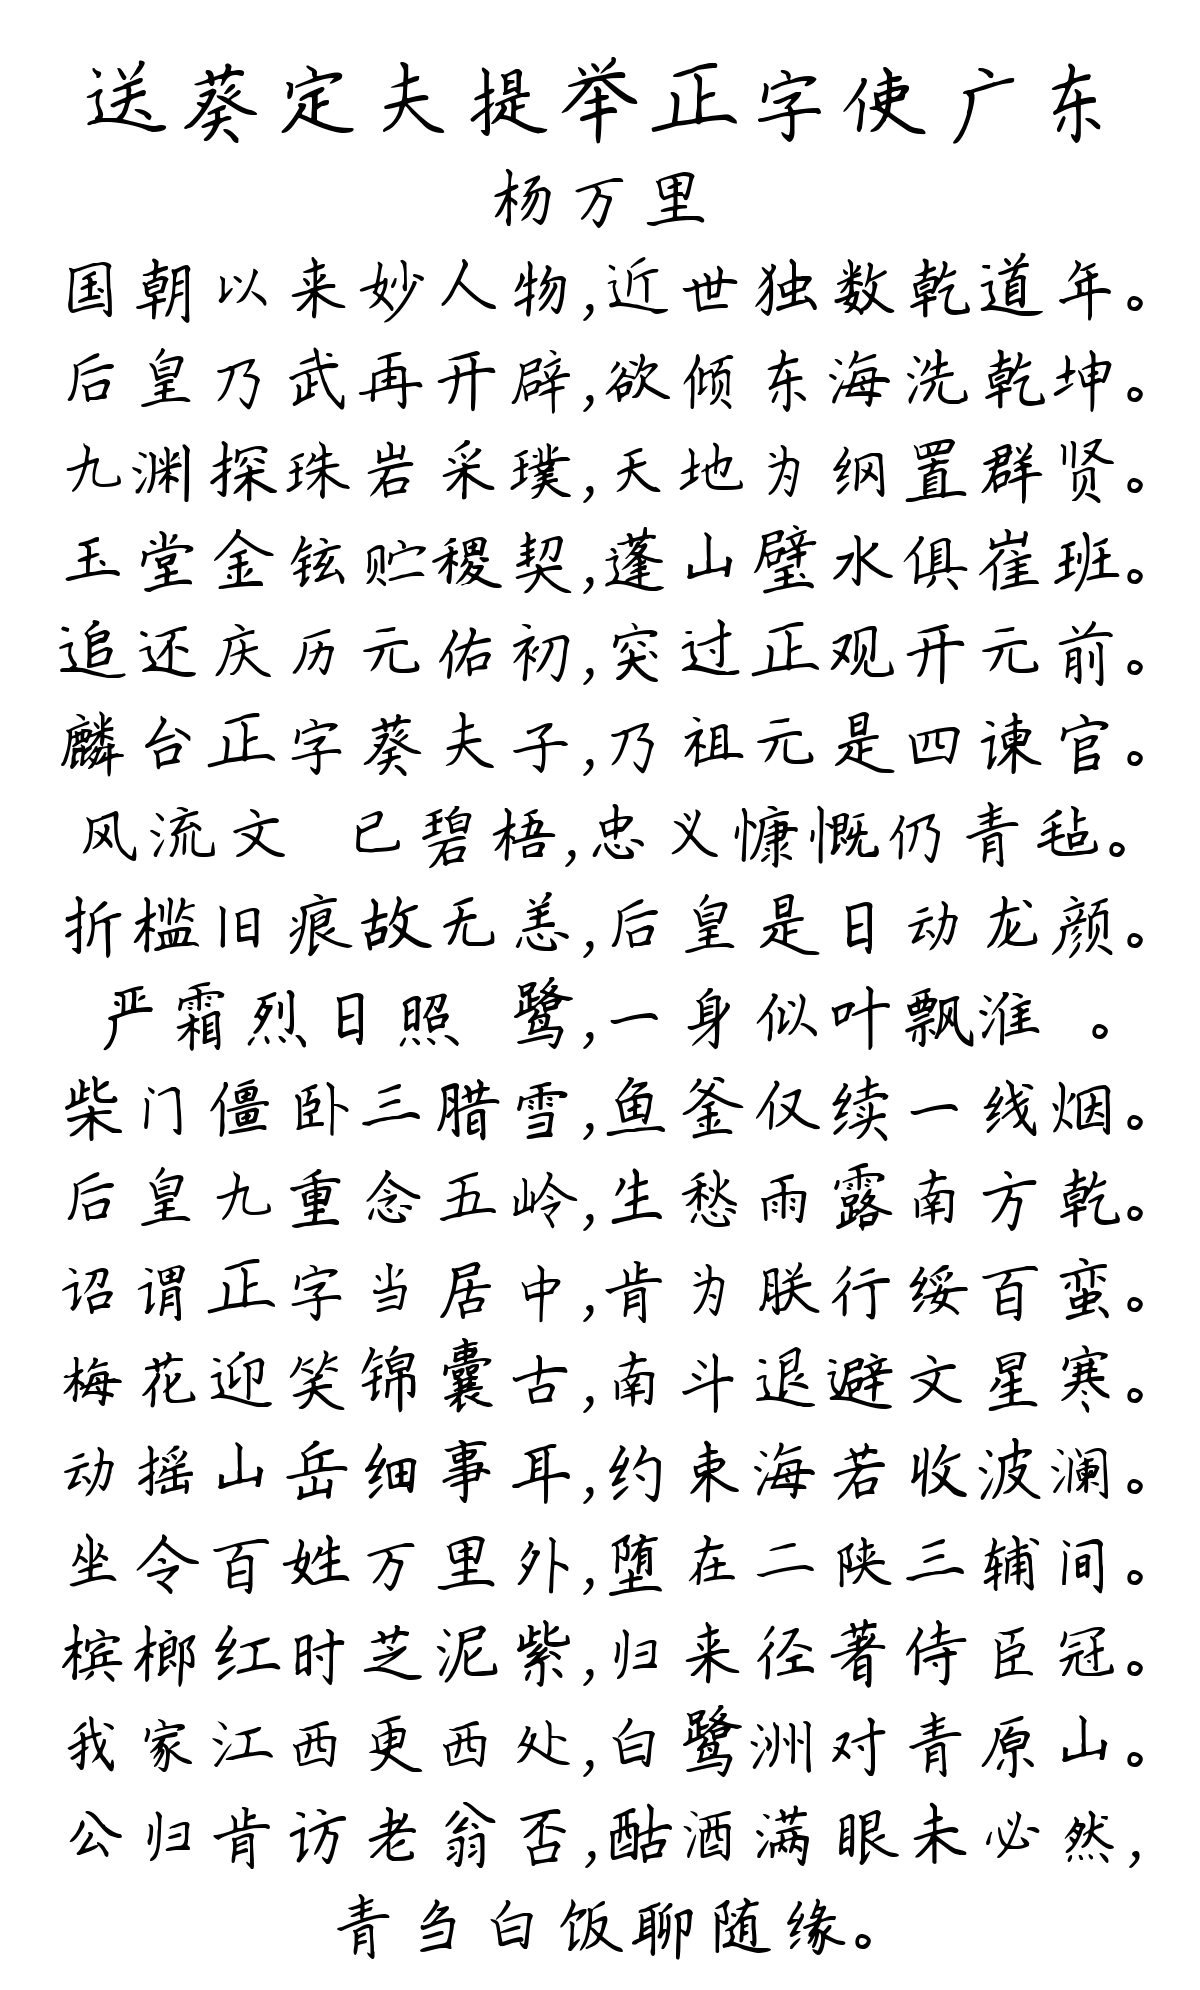 送葵定夫提举正字使广东
杨万里
国朝以来妙人物,近世独数乾道年。
后皇乃武再开辟,欲倾东海洗乾坤。
九渊探珠岩采璞,天地为纲置群贤。
玉堂金铉贮稷契,蓬山璧水俱崔班。
追还庆历元佑初,突过正观开元前。
麟台正字葵夫子,乃祖元是四谏官。
风流文 已碧梧,忠义慷慨仍青毡。
折槛旧痕故无恙,后皇是日动龙颜。
严霜烈日照 鹭,一身似叶飘淮 。
柴门僵卧三腊雪,鱼釜仅续一线烟。
后皇九重念五岭,生愁雨露南方乾。
诏谓正字当居中,肯为朕行绥百蛮。
梅花迎笑锦囊古,南斗退避文星寒。
动摇山岳细事耳,约束海若收波澜。
坐令百姓万里外,堕在二陕三辅间。
槟榔红时芝泥紫,归来径著侍臣冠。
我家江西更西处,白鹭洲对青原山。
公归肯访老翁否,酤酒满眼未必然,
青刍白饭聊随缘。